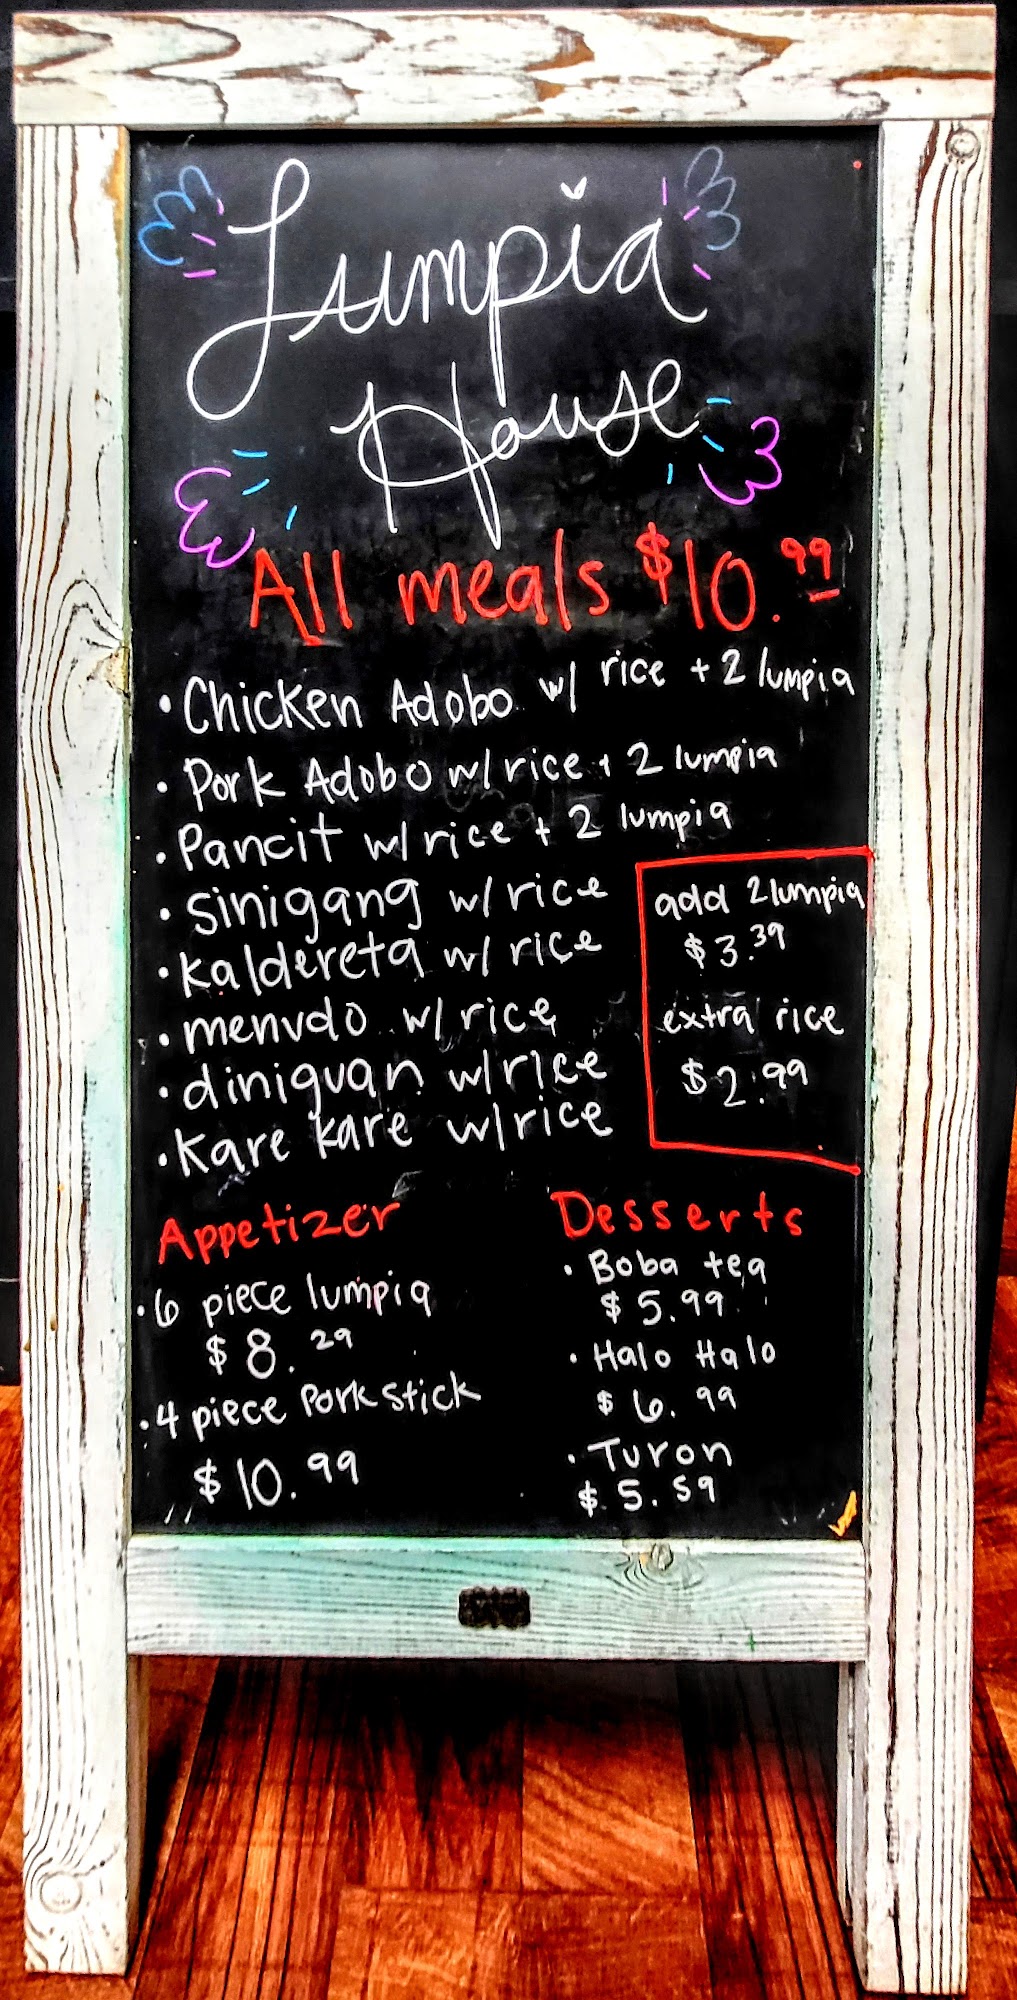 Lumpia
House
All meals $10.99
• Chicken Adobo w/ rice + 2 lumpia
• Pork Adobo w/ rice + 2 lumpia
• Pancit w/ rice + 2 lumpia
• Sinigang w/ rice
• Kaldereta w/ rice
• menudo w/ rice
• diniguan w/ rice
• Kare kare w/ rice
add 2 lumpia
$3.39
extra rice
$2.99
Appetizer
• 6 piece lumpia
$8.29
• 4 piece Pork stick
$10.99
Desserts
• Boba tea
$5.99
• Halo Halo
$6.99
• Turon
$5.59